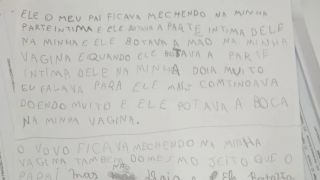 ELE O MEU PAI FICAVA MECHENDO NA MINHA
PARTE INTIMA E ELE BOTAVA A PARTE INTIMA DELE
NA MINHA E ELE BOTAVA A MÃO NA MINHA
VAGINA E QUANDO ELE BOTAVA A PARTE
INTIMA DELE NA MINHA DOIA MUITO
EU FALAVA PARA ELE MAIS CONTINUAVA
DOENDO MUITO E ELE BOTAVA A BOCA
NA MINHA VAGINA.
O VOVO FICAVA MECHENDO NA MINHA
VAGINA TAMBÉM DO MESMO JEITO QUE O
PAPAI mas não